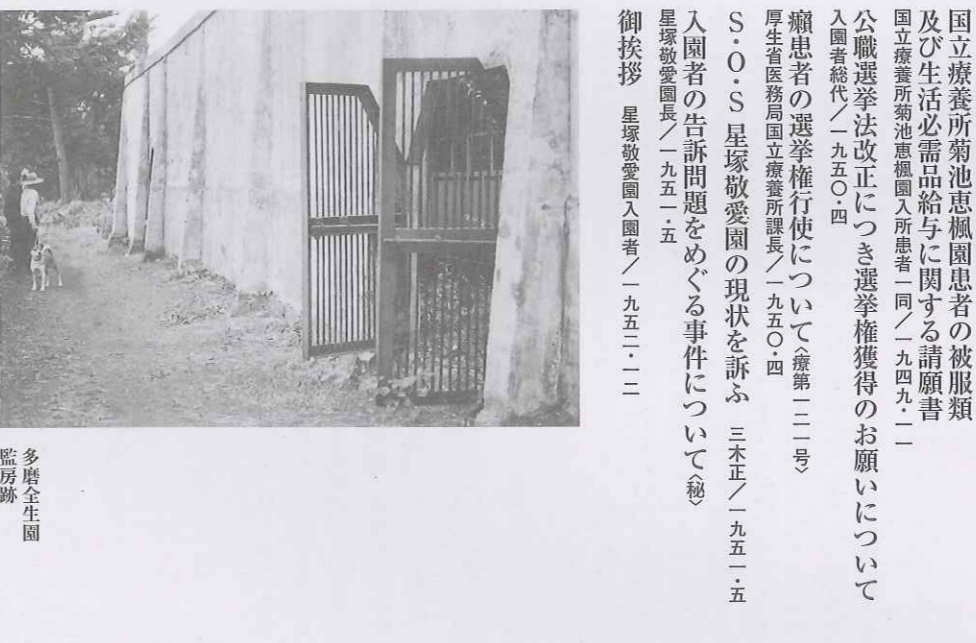 国立療養所菊池恵楓園患者の被服類
及び生活必需品給与に関する請願書
国立療養所菊池恵楓園入所患者一同／一九四九・一一
公職選挙法改正につき選挙権獲得のお願いについて
入園者総代／一九五〇・四
癩患者の選挙権行使について〈療第一二一号〉
厚生省医務局国立療養所課長／一九五〇・四
S・O・S 星塚敬愛園の現状を訴ふ 三木正／一九五一・五
入園者の告訴問題をめぐる事件について〈秘〉
星塚敬愛園長／一九五一・五
御挨拶 星塚敬愛園入園者／一九五二・一二
多磨全生園
監房跡